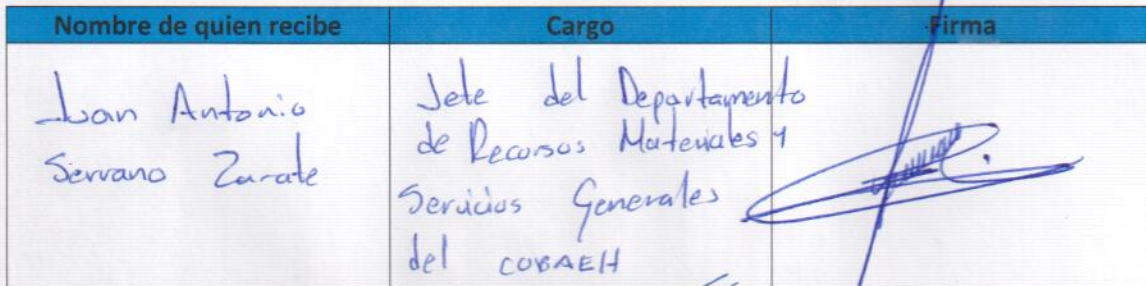 Nombre de quien recibe Cargo Firma
Juan Antonio
Serrano Zarate
Jefe del Departamento
de Recursos Materiales y
Servicios Generales
del COBAEH